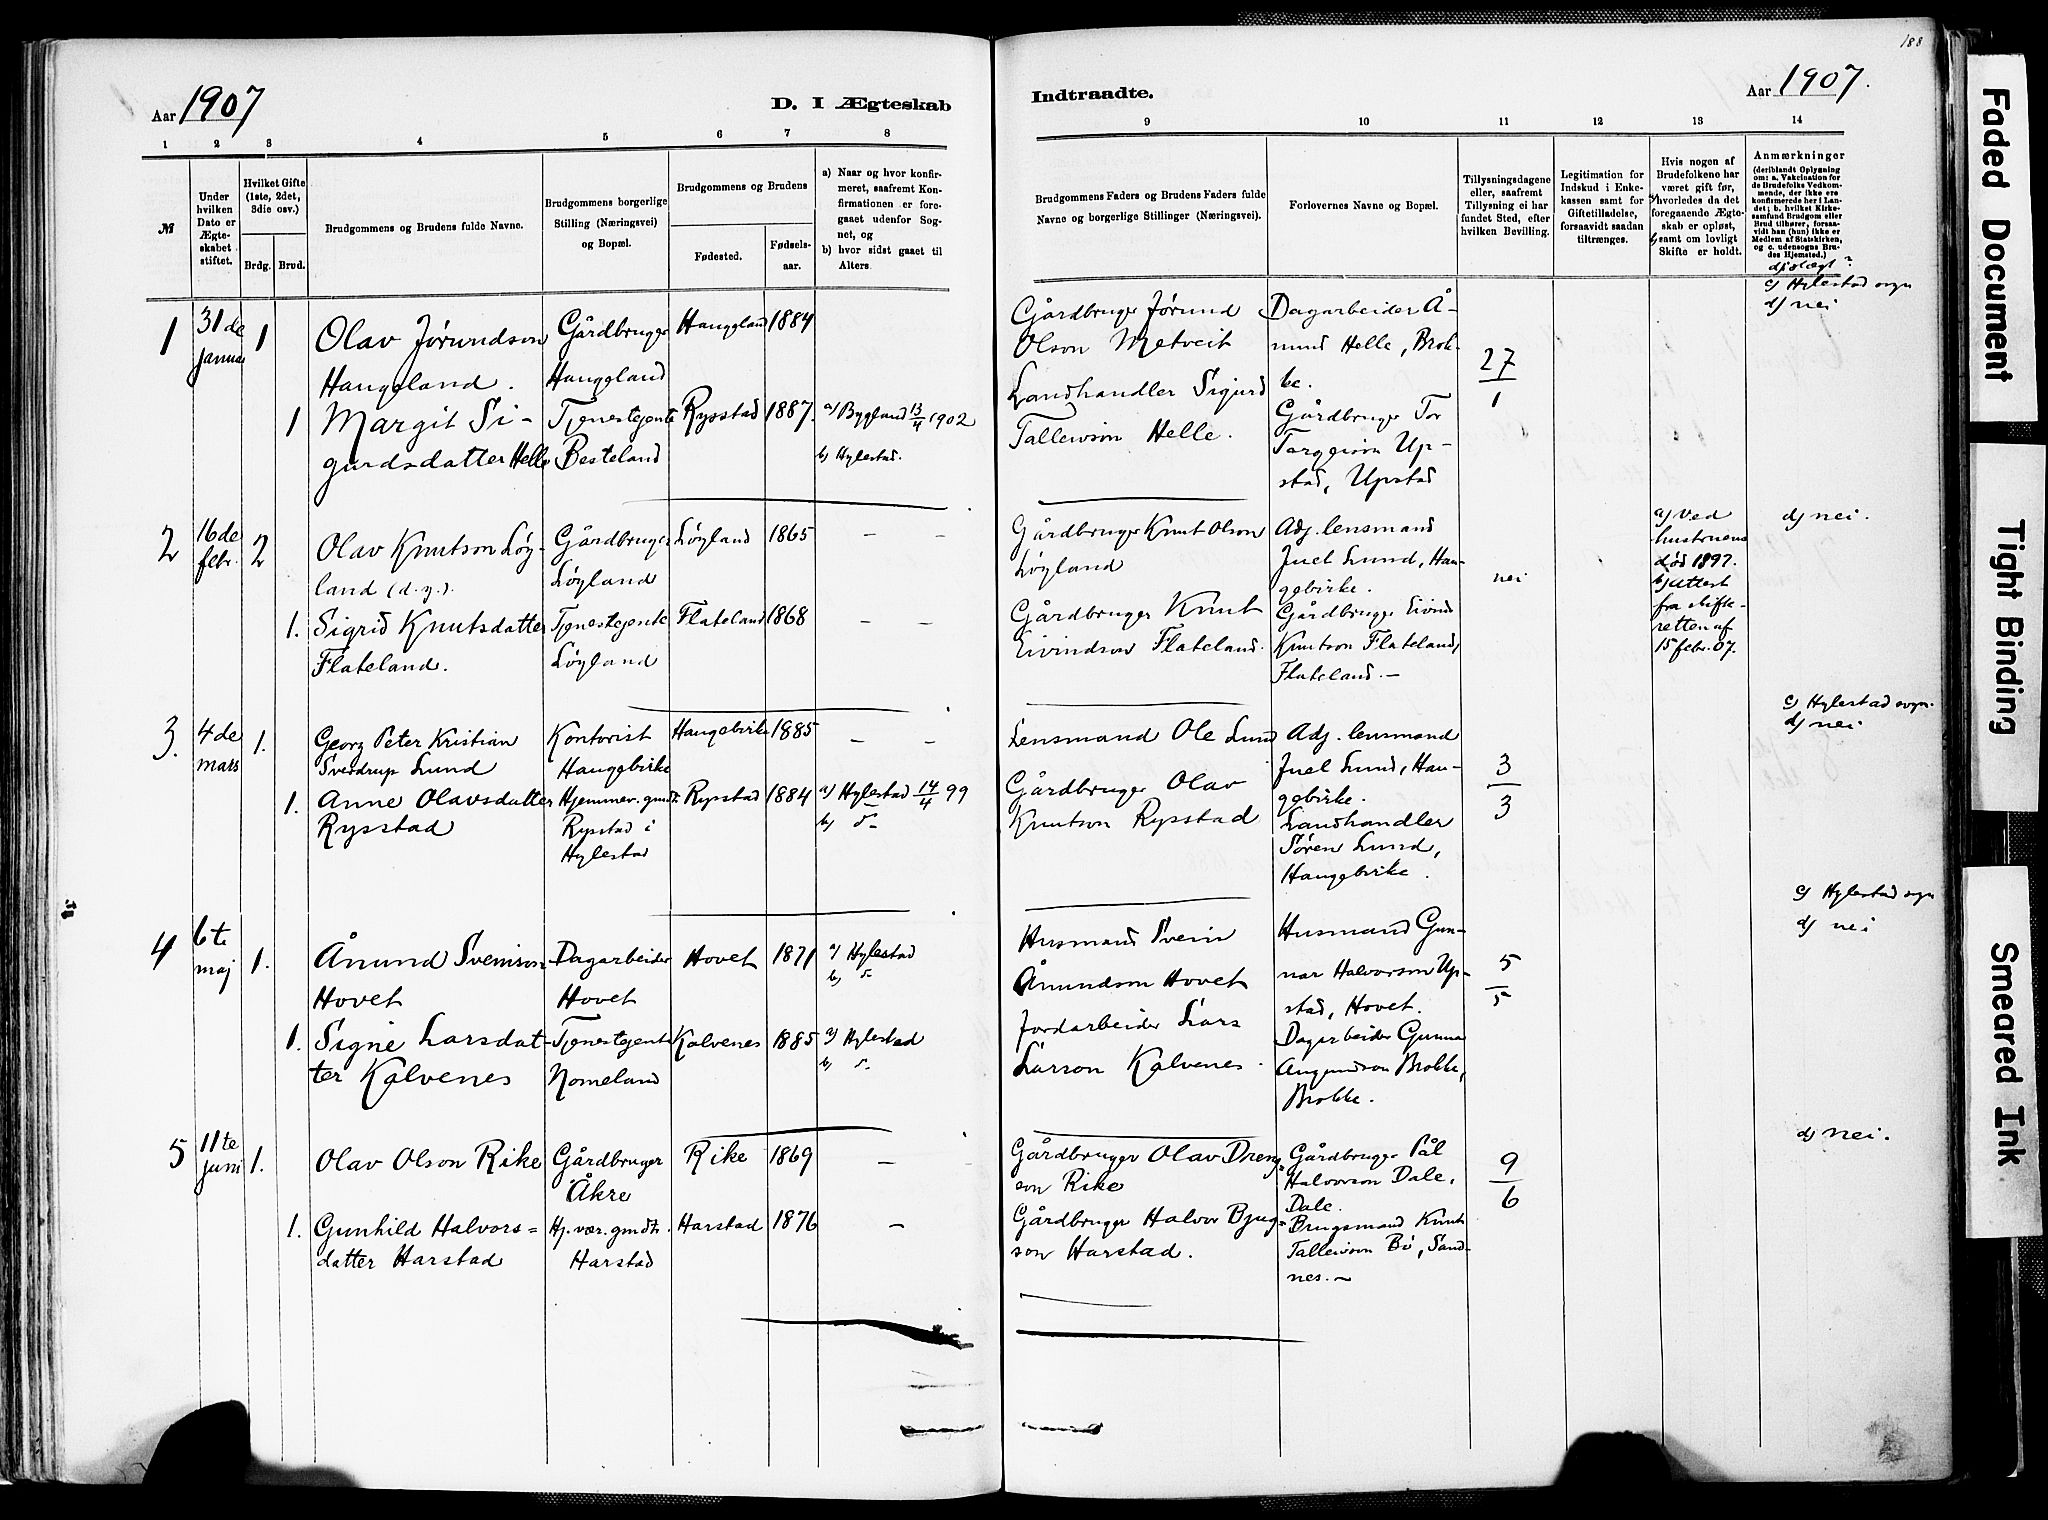 188
Aar 1907
D. I Ægteskab
Indtraadte.
Aar 1907.
1 2 3 4 5 6 7 8
9 10 11 12 13 14
№
Under hvilken Dato er Ægteskabet stiftet.
Hvilket Gifte (1ste, 2det, 3die osv.)
Brdg. Brud.
Brudgommens og Brudens fulde Navne.
Brudgommens borgerlige Stilling (Næringsvei) og Bopæl.
Brudgommens og Brudens
Fødested.
Fødselsaar.
a) Naar og hvor konfirmeret, saafremt Konfirmationen er foregaaet udenfor Sognet, og
b) hvor sidst gaaet til Alters.
Brudgommens Faders og Brudens Faders fulde Navne og borgerlige Stillinger (Næringsvei).
Forlovernes Navne og Bopæl.
Tillysningsdagene eller, saafremt Tillysning ei har fundet Sted, efter hvilken Bevilling.
Legitimation for Indskud i Enkekassen samt for Giftetilladelse, forsaavidt saadan tiltrænges.
Hvis nogen af Brudefolkene har været gift før, a) hvorledes da det foregaaende Ægteskab er opløst, b) samt om lovligt Skifte er holdt.
Anmærkninger
(deriblandt Oplysning om: a. Vakcination for de Brudefolks Vedkommende, der ikke ere konfirmerede her i Landet; b. hvilket Kirkesamfund Brudgom eller Brud tilhører, forsaavidt han (hun) ikke er Medlem af Statskirken, og c. udensogns Brudes Hjemsted.)
d) slægt?
1
31de
januar
1
Olav Jørundson
Haugeland.
Gårdbruger
Haugeland
Haugeland
1884
Gårdbruger Jørund
Olson Metveit
Dagarbeider Å-
mund Helle, Brok-
ke.
27
1
c) Hylestad sogn
d) nei
1
Margit Si-
gurdsdatter Helle
Tjenestejente
Besteland
Rysstad
1887.
a) Bygland 13/4 1902
b) Hylestad.
Landhandler Sigurd
Tallewson Helle.
Gårdbruger Tor
Torgeirson Up-
stad, Upstad
2
16de
febr.
2
Olav Knutson Løy-
land (d.y.).
Gårdbruger
Løyland
Løyland
1865
— —
Gårdbruger Knut Olson
Løyland
Adj. lensmand
Juel Lund, Hau-
gebirke.
nei
a) ved
hustruens
død 1897.
b) Attest
fra skifte-
retten af
15 febr. 07.
d) nei.
1.
Sigrid Knutsdatter
Flateland.
Tjenestejente
Løyland
Flateland
1868
— —
Gårdbruger Knut
Eivindson Flateland.
Gårdbruger Eivind
Knutson Flateland,
Flateland. —
3.
4de
mars
1.
Georg Peter Kristian
Sverdrup Lund
Kontorist
Haugebirke
Haugebirke
1885
— —
Lensmand Ole Lund
Adj. lensmand
Juel Lund, Hau-
gebirke.
3
3
c) Hylestad sogn.
d) nei
1.
Anne Olavsdatter
Rysstad
Hjemmev. gmdt.
Rysstad i
Hylestad
Rysstad
1884
a) Hylestad 14/4 99
b) do
Gårdbruger Olav
Knutson Rysstad
Landhandler
Søren Lund,
Haugebirke.
4
6te
maj
1.
Ånund Sveinson
Hovet
Dagarbeider
Hovet
Hovet
1871
a) Hylestad
b) do
Husmand Svein
Ånundson Hovet
Husmand Gun-
nar Halvorson Up-
stad, Hovet.
5
5
c) Hylestad sogn
d) nei
1.
Signe Larsdat-
ter Kalvenes
Tjenestejente
Nomeland
Kalvenes
1885
a) Hylestad
b) do
Jordarbeider Lars
Larson Kalvenes.
Dagarbeider Gunnar
Aamundson Brokke,
Brokke.
5
11te
juni
1.
Olav Olson Rike
Gårdbruger
Åkre
Rike
1869
—
Gårdbruger Olav Dreng-
son Rike
Gårdbruger Pål
Halvorson Dale,
Dale.
9
6
d) nei.
1.
Gunhild Halvors=
datter Harstad
Hj. vær. gmdt.
Harstad
Harstad
1876
—
Gårdbruger Halvor Bjug-
son Harstad.
Brugsmand Knut
Tallewson Bø, Sand-
nes. —
Faded Document
Tight Binding
Smeared Ink